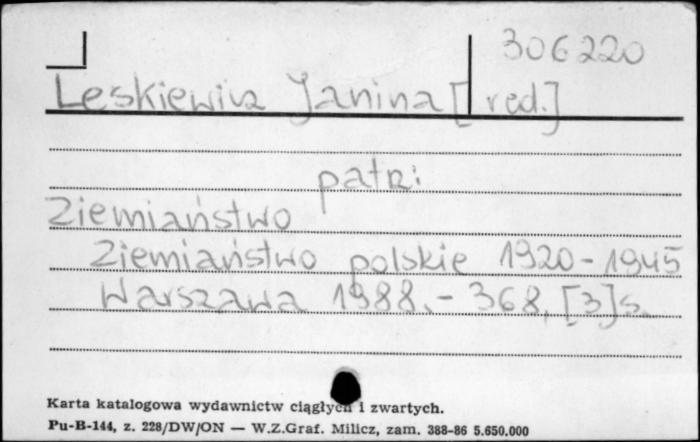 306220
Leskiewicz Janina [red.]
patrz:
Ziemiaństwo
Ziemiaństwo polskie 1920-1945
Warszawa 1988.- 368, [3]s.
Karta katalogowa wydawnictw ciągłych i zwartych.
Pu-B-144, z. 228/DW/ON — W.Z.Graf. Milicz, zam. 388-86 5.650,000